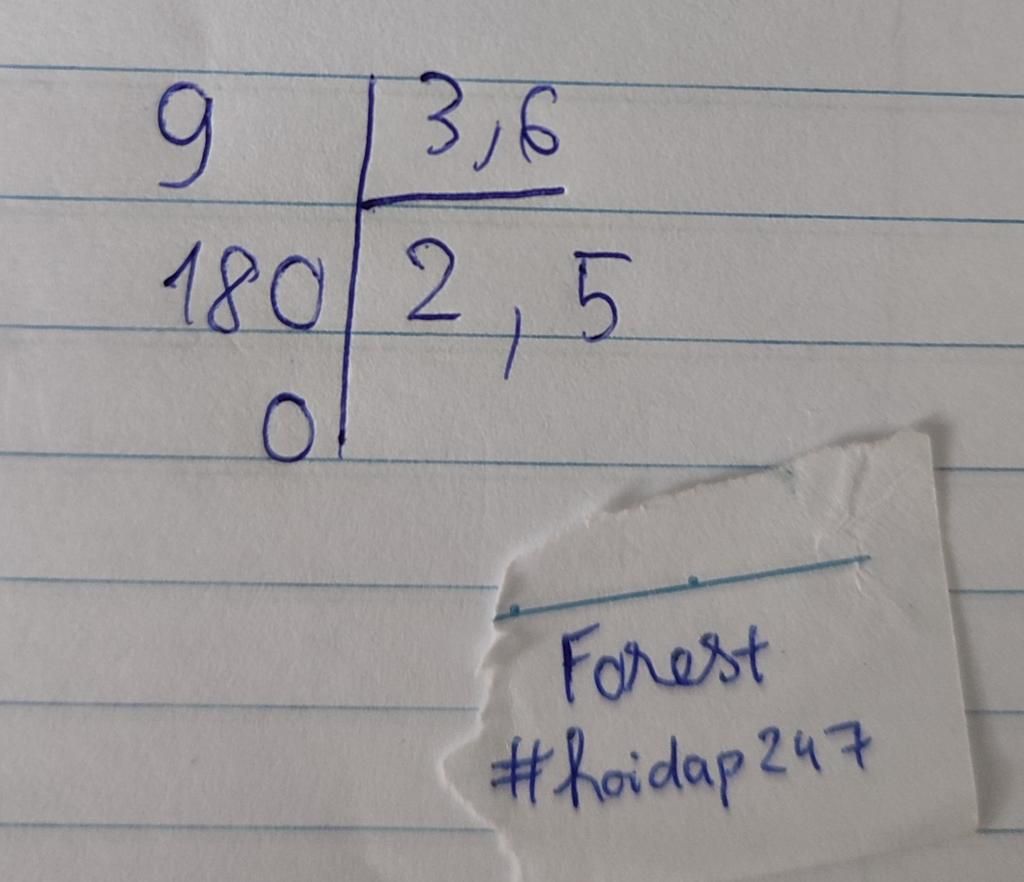 9 3,6
180 2,5
0
Forest
#hoidap247